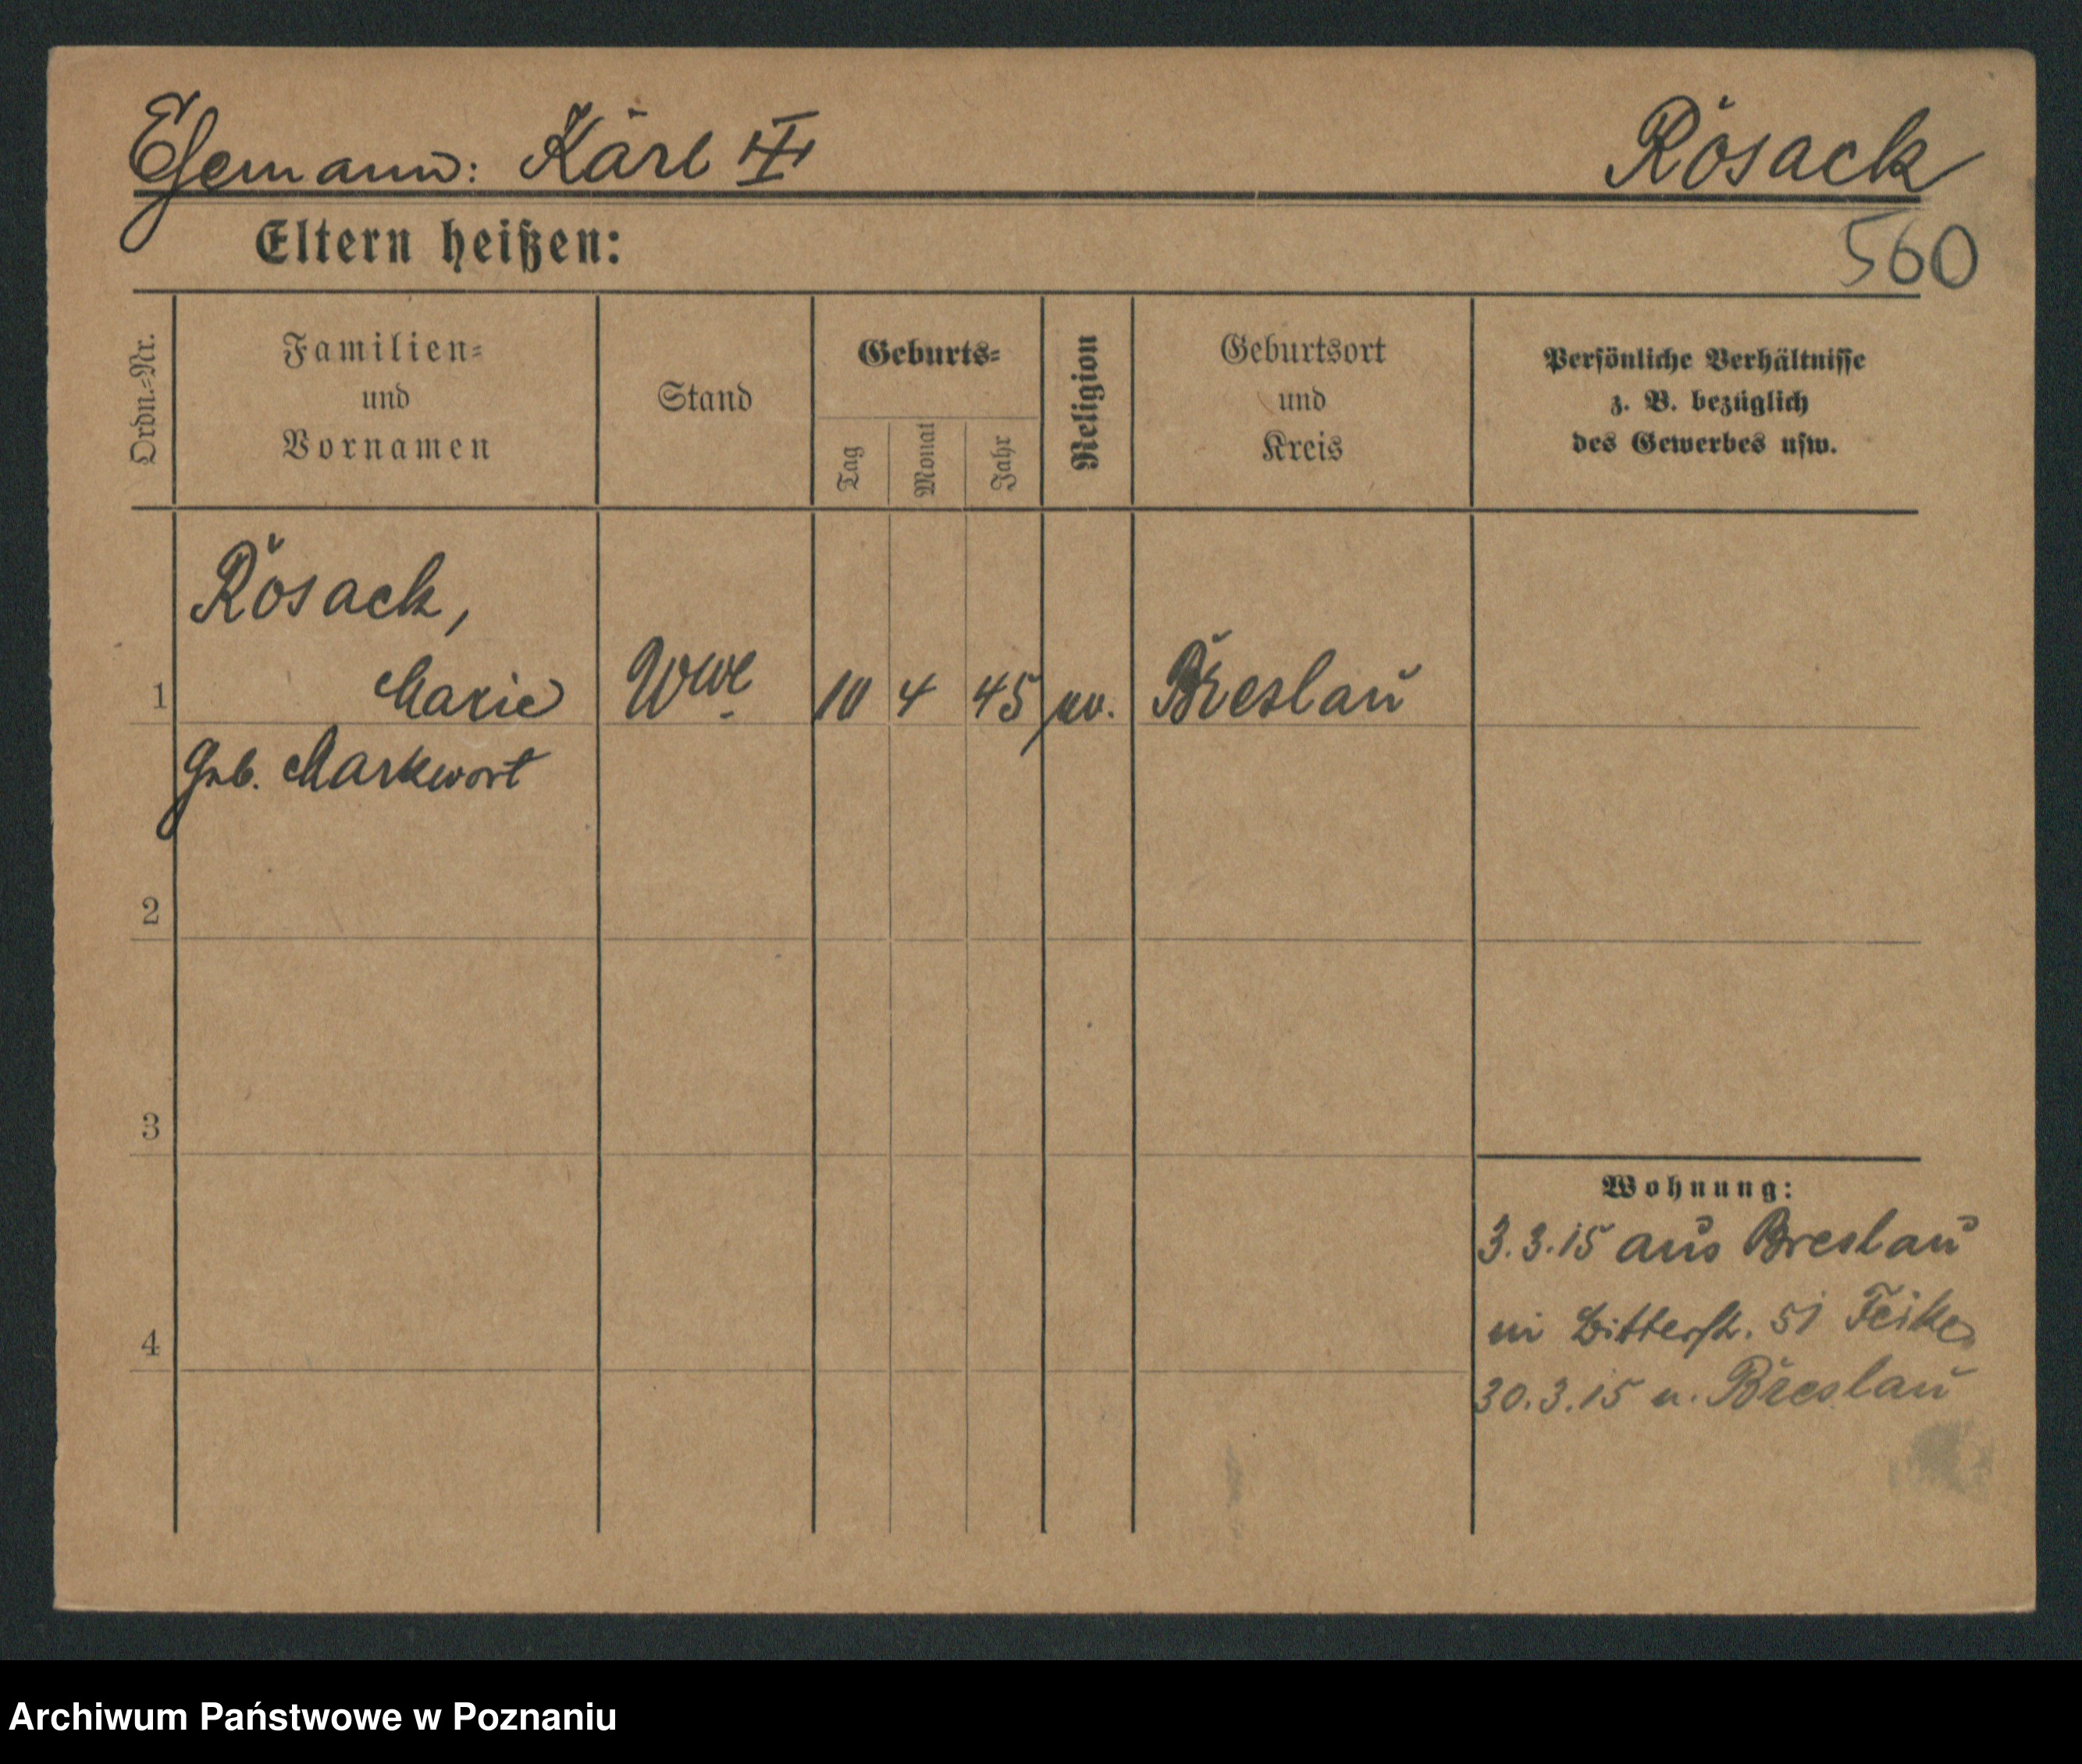 Ehemann: Karl Rösack
560
Eltern heißen:
Ordn.-Nr.
Familien-
und
Vornamen
Stand
Geburts-
Tag
Monat
Jahr
Religion
Geburtsort
und
Kreis
Persönliche Verhältnisse
z. B. bezüglich
des Gewerbes usw.
Rösack,
1 Marie Wwe 10 4 45 ev. Breslau
geb. Markwort
2
3
4
Wohnung:
3.3.15 aus Breslau
51
30.3.15 n. Breslau
Archiwum Państwowe w Poznaniu